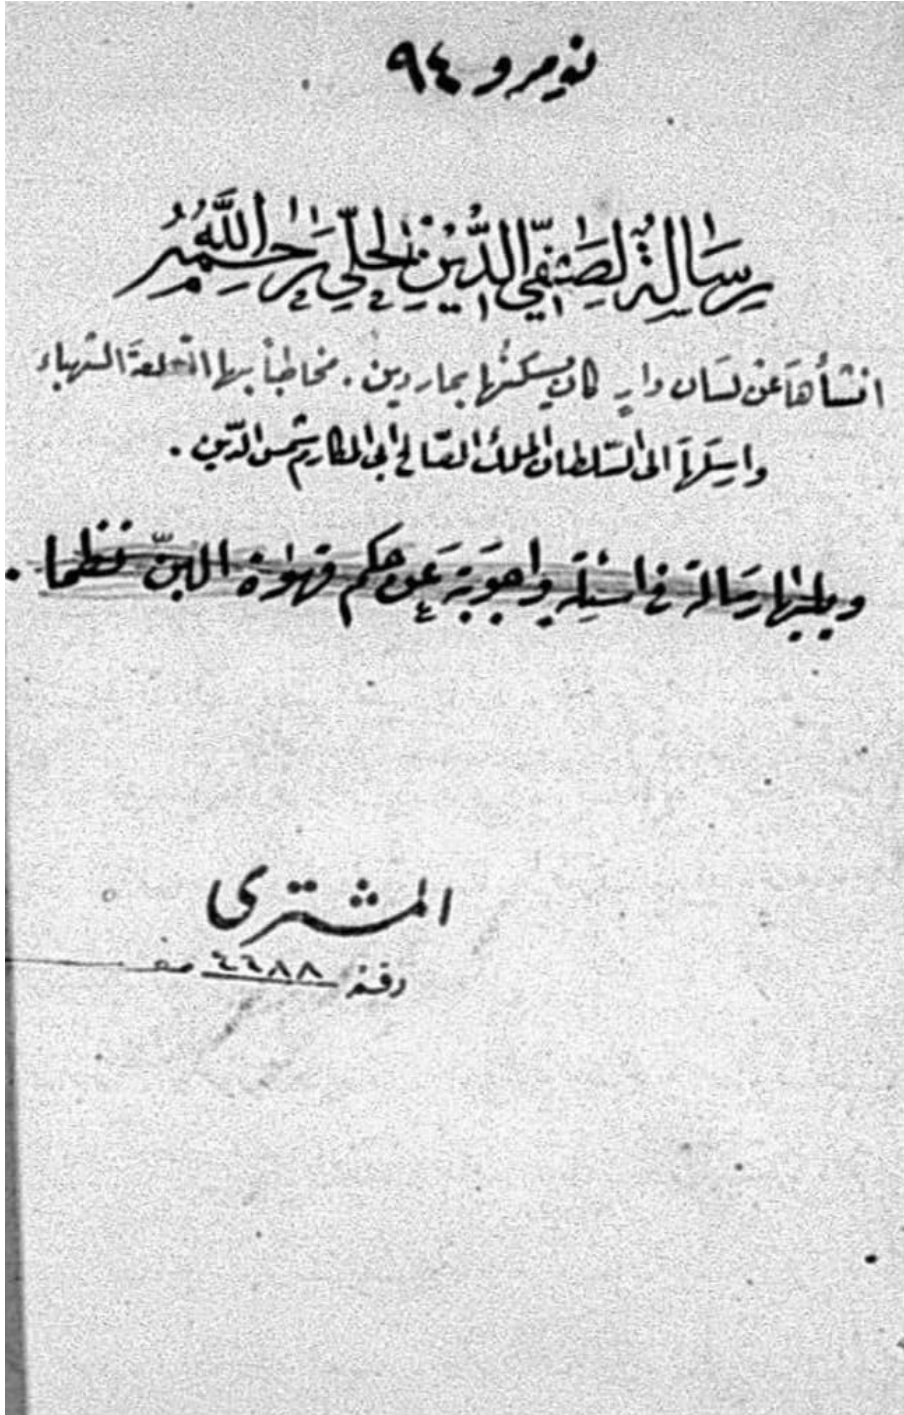 نومرو ٩٤
رِسَالَةٌ لِصَفِيِّ الدِّيْنِ الحِلّي رَحِمَهُ اللَّهُ
انشأها عَن لسَان دارٍ كان يسكنُها بماردين . مخاطباً بها القلعةَ الشهباء
وارسَلهَا الى السّلطان الملك الصّالح ابي المكارم شمس الدّين .
ويليها رسَالة في اسئلة واجوبَة عَن حكم قهوة البنّ نظما .
المشترى